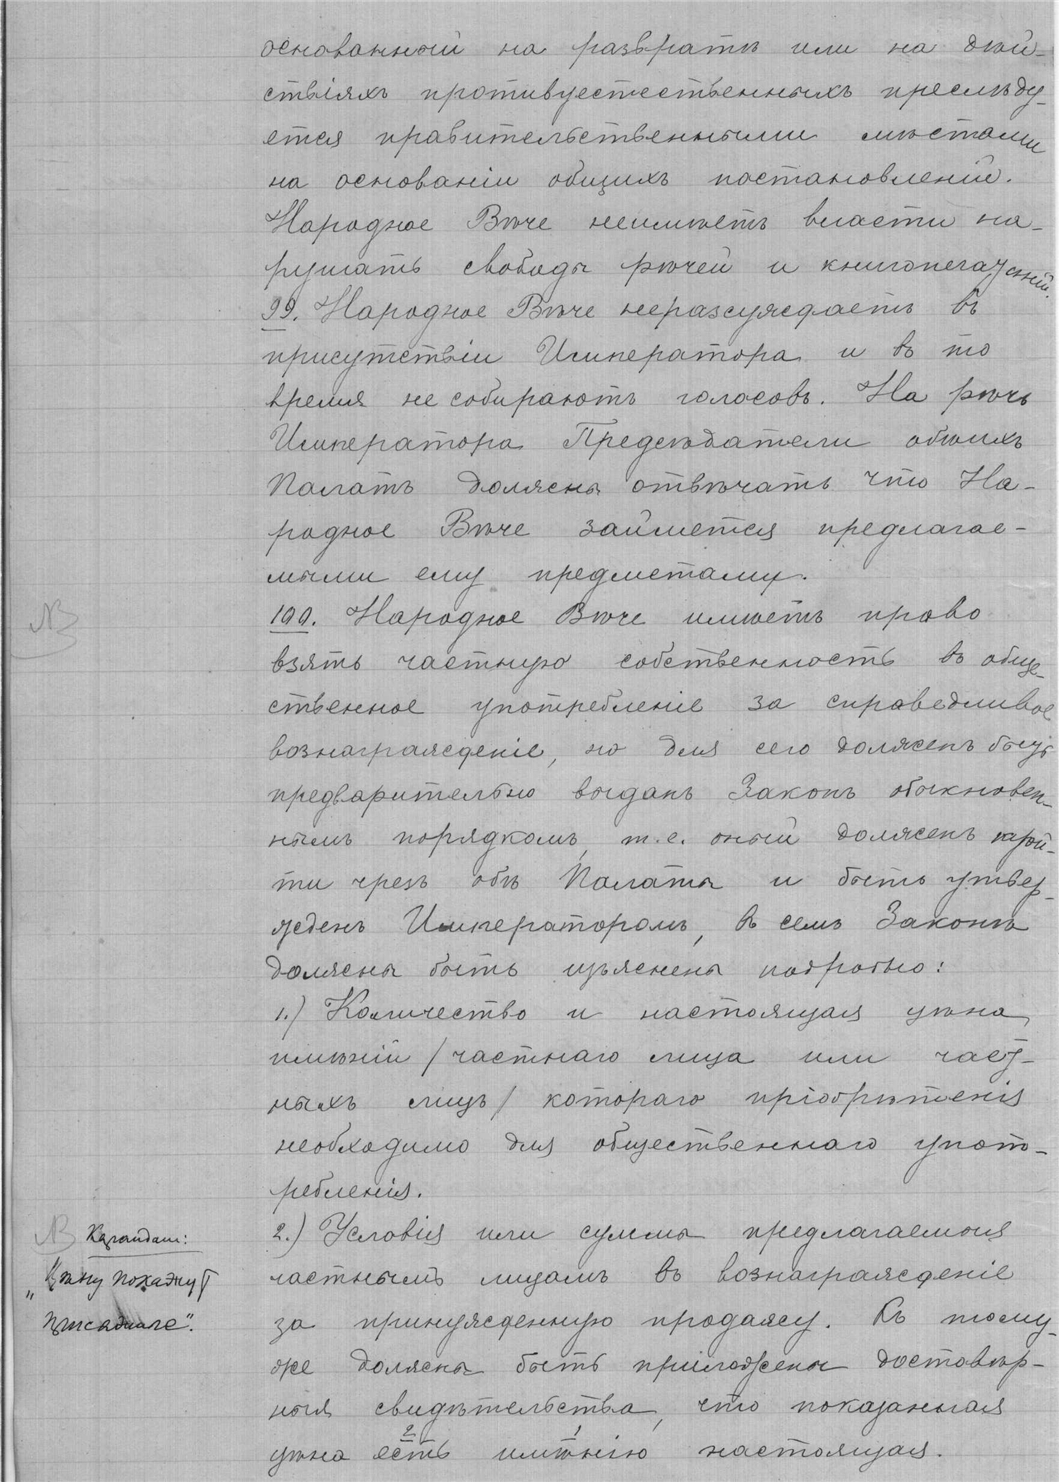 основанной на развратѣ или на дѣй-
ствіяхъ противуестественныхъ преслѣду-
ется правительственными мѣстами
на основаніи общихъ постановленій.
Народное Вѣче неимѣетъ власти на-
рушать свободы рѣчей и книгопечатаній.
99. Народное Вѣче неразсуждаетъ въ
присутствіи Императора и въ то
время не собираютъ голосовъ. На рѣчь
Императора Предсѣдатели обѣихъ
Палатъ должны отвѣчать что На-
родное Вѣче займется предлагае-
мыми ему предметами.
100. Народное Вѣче имѣетъ право
взять частную собственность въ обще-
ственное употребленіе за справедливое
вознагражденіе, но для сего долженъ быть
предварительно выданъ Законъ обыкновен-
нымъ порядкомъ, т.е. оный долженъ прой-
ти чрезъ обѣ Палаты и быть утвер-
жденъ Императоромъ, въ семъ Законѣ
должны быть изъяснены подробно:
1.) Количество и настоящая цѣна
имѣній /частнаго лица или част-
ныхъ лицъ/ котораго пріобрѣтенія
необходимо для общественнаго упот-
ребленія.
2.) Условія или суммы предлагаемыя
частнымъ лицамъ въ вознагражденіе
за принужденную продажу. Къ тому-
же должны быть приложены достовѣр-
ныя свидѣтельства, что показанная
цѣна есть имѣнію настоящая.
2 1
NB
NB Карандаш:
„Цѣну покажут